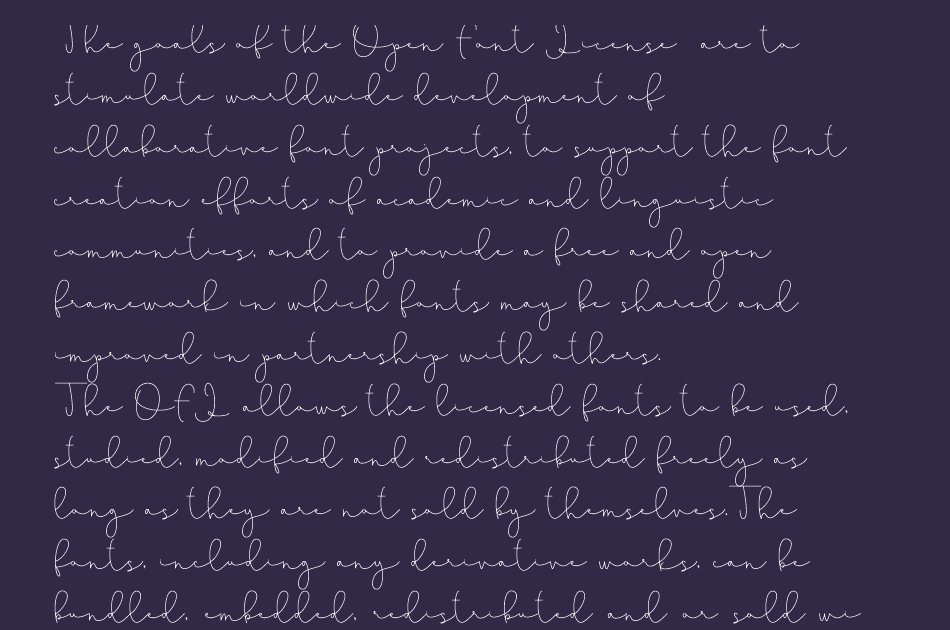 The goals of the Open Font License are to
stimulate worldwide development of
collaborative font projects, to support the font
creation efforts of academic and linguistic
communities, and to provide a free and open
framework in which fonts may be shared and
improved in partnership with others.
The OFL allows the licensed fonts to be used,
studied, modified and redistributed freely as
long as they are not sold by themselves. The
fonts, including any derivative works, can be
bundled, embedded, redistributed and or sold wi